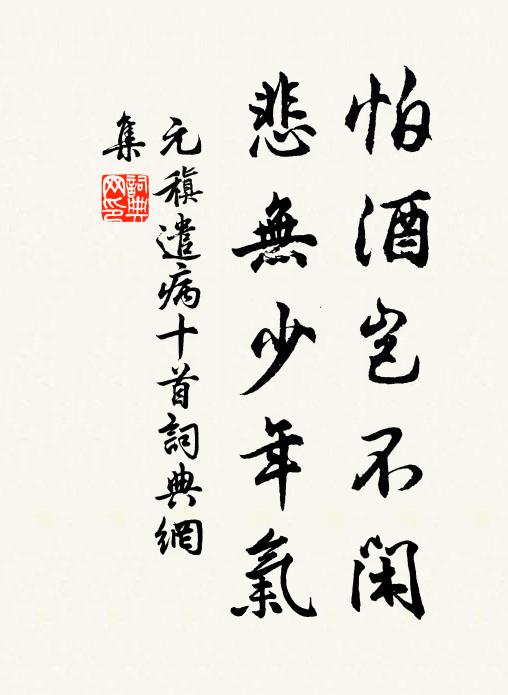 怕酒豈不閑
悲無少年氣
元稹遣病十首詞典網
集
詞典网印